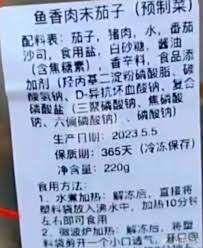 鱼香肉末茄子（预制菜）
配料表：茄子，猪肉，水，番茄
沙司，食用盐，白砂糖，酱油
（含焦糖素），香辛料，食品添
加剂（羟丙基二淀粉磷酸酯、碳
酸氢钠、D-异抗坏血酸钠、复合
磷酸盐（三聚磷酸钠、焦磷酸
钠、六偏磷酸钠）、磷酸钠）
生产日期：2023.5.5
保质期：365天（冷冻保存）
净含量：220g
食用方法：
1、水煮加热：解冻后，直接将
塑料袋放入沸水中，加热10分钟
左右即可食用。
2、微波炉加热：解冻后，将塑
料袋剪开一个小口透气，